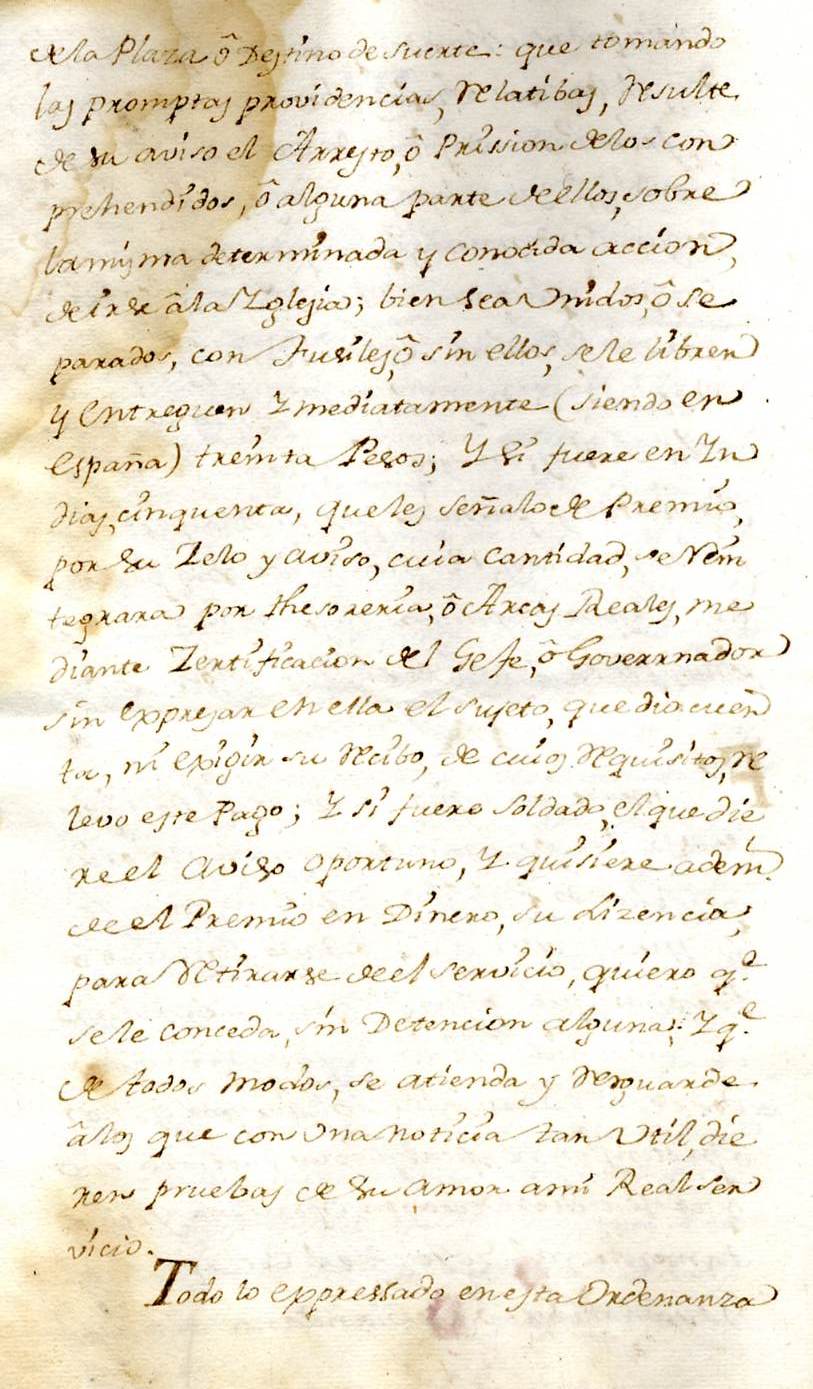 de la Plaza ô Destino de suerte: que tomando
las promptas providencias, Relatibas, Resulte
de su aviso el Arresto, ô Prission de los con
prehendidos, ô alguna parte de ellos, sobre
la misma determinada y conocida accion,
de irse â la Yglesia; bien sean Unidos, ô se
parados, con Fusiles, ô sin ellos, se le libren
y entreguen Ymediatamente (siendo en
España) treinta Pesos; Y si fuere en Yn
dias, cinquenta, que les señalo de Premio,
por su Zelo y aviso, cuia cantidad, se Rein
tegrara por thesoreria, ô Arcas Reales, me
diante Zertificacion del Gefe, ô Goverrnador
sin expresar en ella el sujeto, que dio cuen
ta, ni exigir su Recibo, de cuios Requisitos, re
levo este Pago; Y si fuere soldado, el que die
re el aviso oportuno, Y quisiere adem.s
de el Premio en Dinero, su Lizencia,
para Retirarse de el servicio, quiero q.e
se le conceda, sin Detencion alguna; Y q.e
de todos modos, se atienda y Resguarde
â los que con Una noticia tan Util, die
ren pruebas de su amor a mi Real ser
vicio.
Todo lo expressado en esta Ordenanza